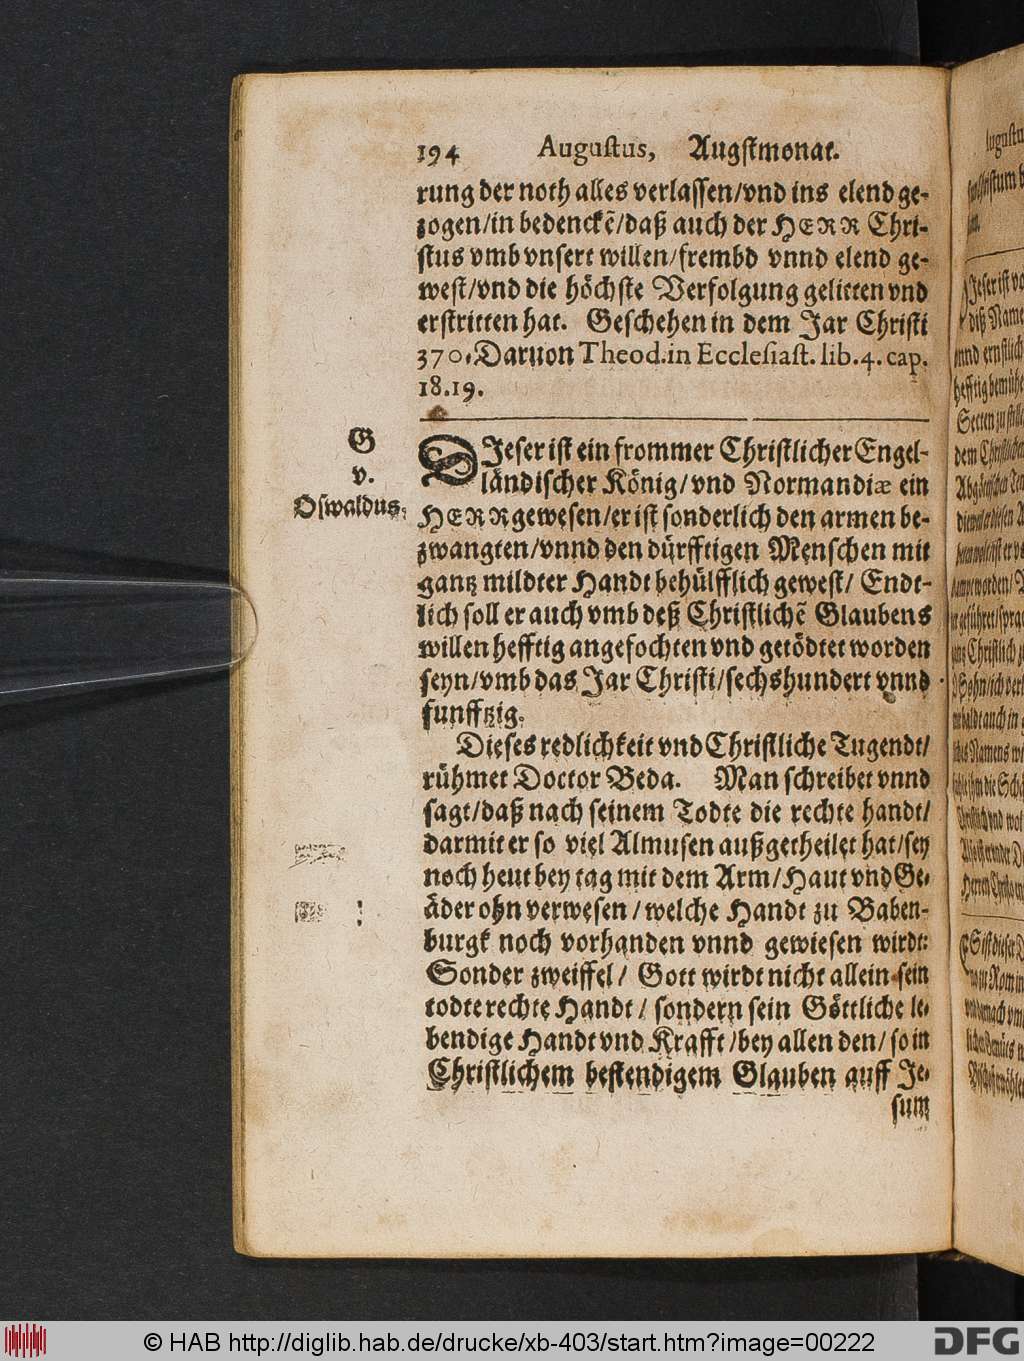 194 Augustus, Augstmonat.
rung der noth alles verlassen/vnd ins elend ge-
zogen/in bedenckẽ/daß auch der HERR Chri-
stus vmb vnsert willen/frembd vnnd elend ge-
west/vnd die höchste Verfolgung gelitten vnd
erstritten hat. Geschehen in dem Jar Christi
370. Daruon Theod. in Ecclesiast. lib. 4. cap.
18. 19.
G
v.
Oswaldus.
DIeser ist ein frommer Christlicher Engel-
ländischer König/vnd Normandiæ ein
HERR gewesen/er ist sonderlich den armen be-
zwangten/vnnd den dürfftigen Menschen mit
gantz mildter Handt behülfflich gewest/ Endt-
lich soll er auch vmb deß Christlichẽ Glaubens
willen hefftig angefochten vnd getödtet worden
seyn/vmb das Jar Christi/sechshundert vnnd
funfftzig.
Dieses redlichkeit vnd Christliche Tugendt/
rühmet Doctor Beda. Man schreibet vnnd
sagt/daß nach seinem Todte die rechte handt/
darmit er so viel Almusen außgetheilet hat/sey
noch heut bey tag mit dem Arm/Haut vnd Ge-
äder ohn verwesen/welche Handt zu Baben-
burgk noch vorhanden vnnd gewiesen wirdt:
Sonder zweiffel/ Gott wirdt nicht allein sein
todte rechte Handt/ sondern sein Göttliche le-
bendige Handt vnd Krafft/bey allen den/ so in
Christlichem bestendigem Glauben auff Je-
sum
© HAB http://diglib.hab.de/drucke/xb-403/start.htm?image=00222
DFG